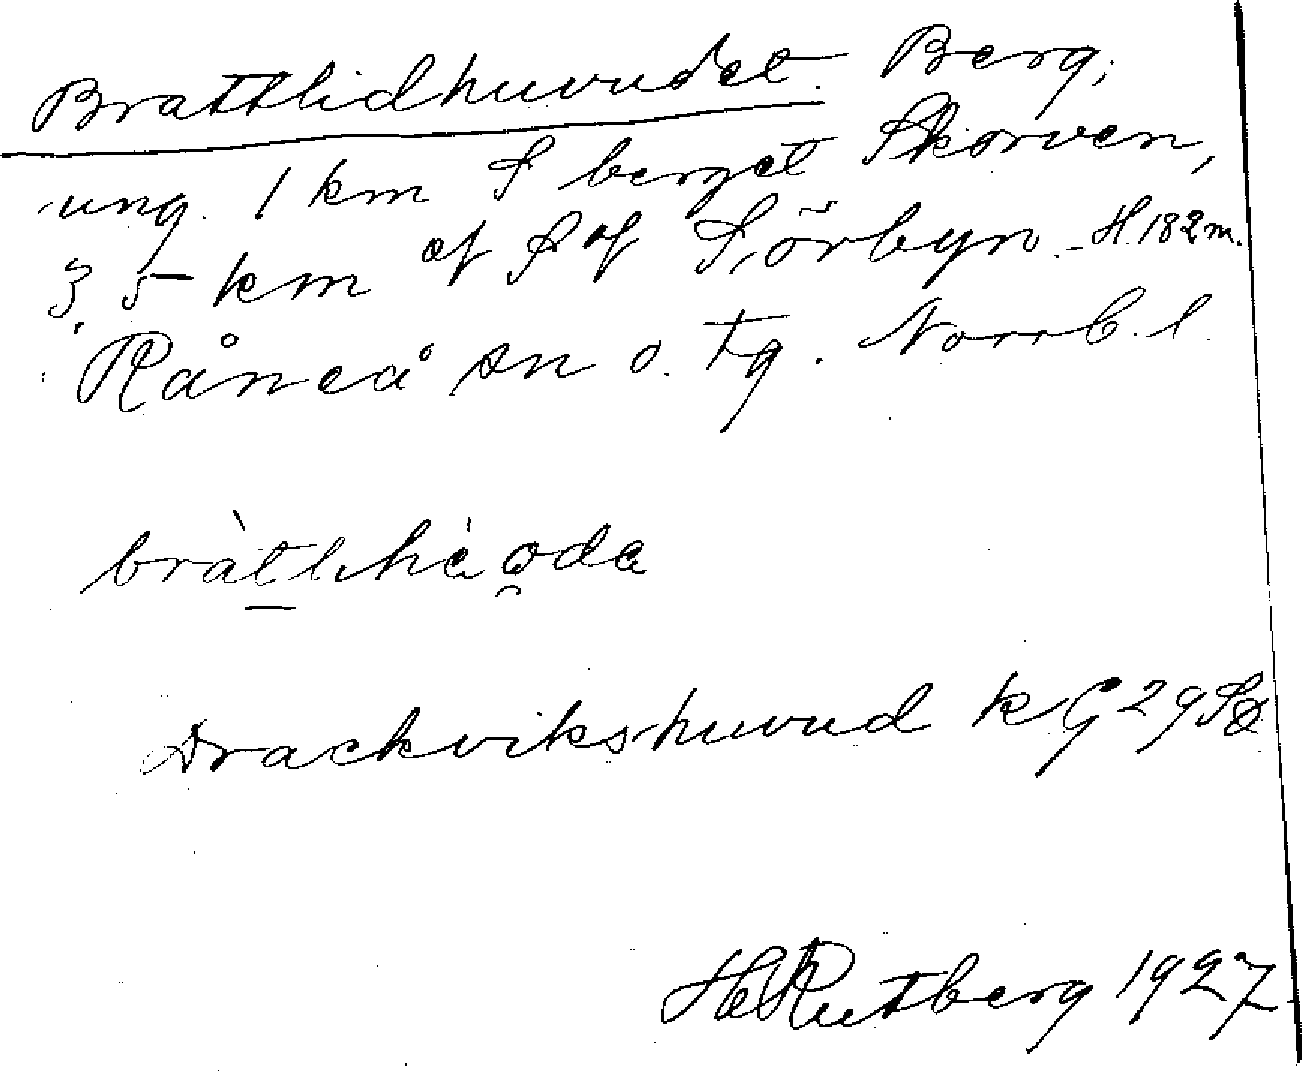 Brattlidhuvudet. Berg,
ung. 1 km S berget Skorven,
3,5 km af S af Sörbyn. - H. 182 m.
Råneå sn o. tg. Norrb. l.
bràtlihèode
Drackvikshuvud k G 29 SO
H Rutberg 1927